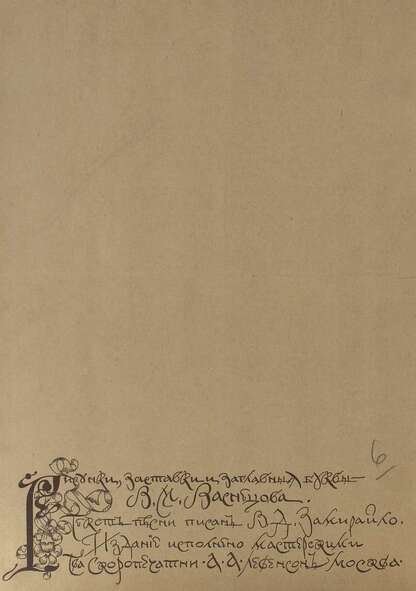 6
Рисунки, заставки и заглавныя буквы
В. М. Васнецова.
Текстъ пѣсни писанъ В. Д. Замирайло.
Изданіе исполнено мастерскими
Т-ва скоропечатни А. А. Левенсонъ Москва.